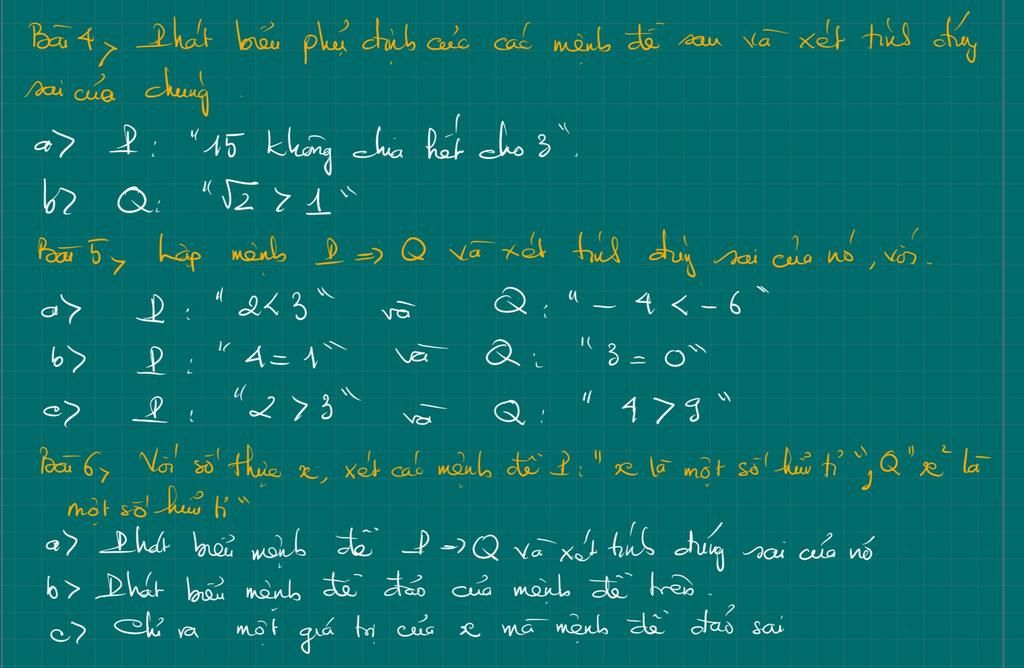 Bài 4, Phát biểu phủ định của các mệnh đề sau và xét tính đúng
sai của chúng.
a> P: "15 không chia hết cho 3".
b> Q: "√2 > 1"
Bài 5, Lập mệnh P => Q và xét tính đúng sai của nó, với.
a> P: "2 < 3" và Q: "- 4 < - 6"
b> P: "4 = 1" và Q: "3 = 0"
c> P: "2 > 3" và Q: "4 > 9"
Bài 6, Với số thực x, xét các mệnh đề P: "x là một số hữu tỉ", Q "x² là
một số hữu tỉ"
a> Phát biểu mệnh đề P => Q và xét tính đúng sai của nó
b> Phát biểu mệnh đề đảo của mệnh đề trên.
c> Chỉ ra một giá trị của x mà mệnh đề đảo sai